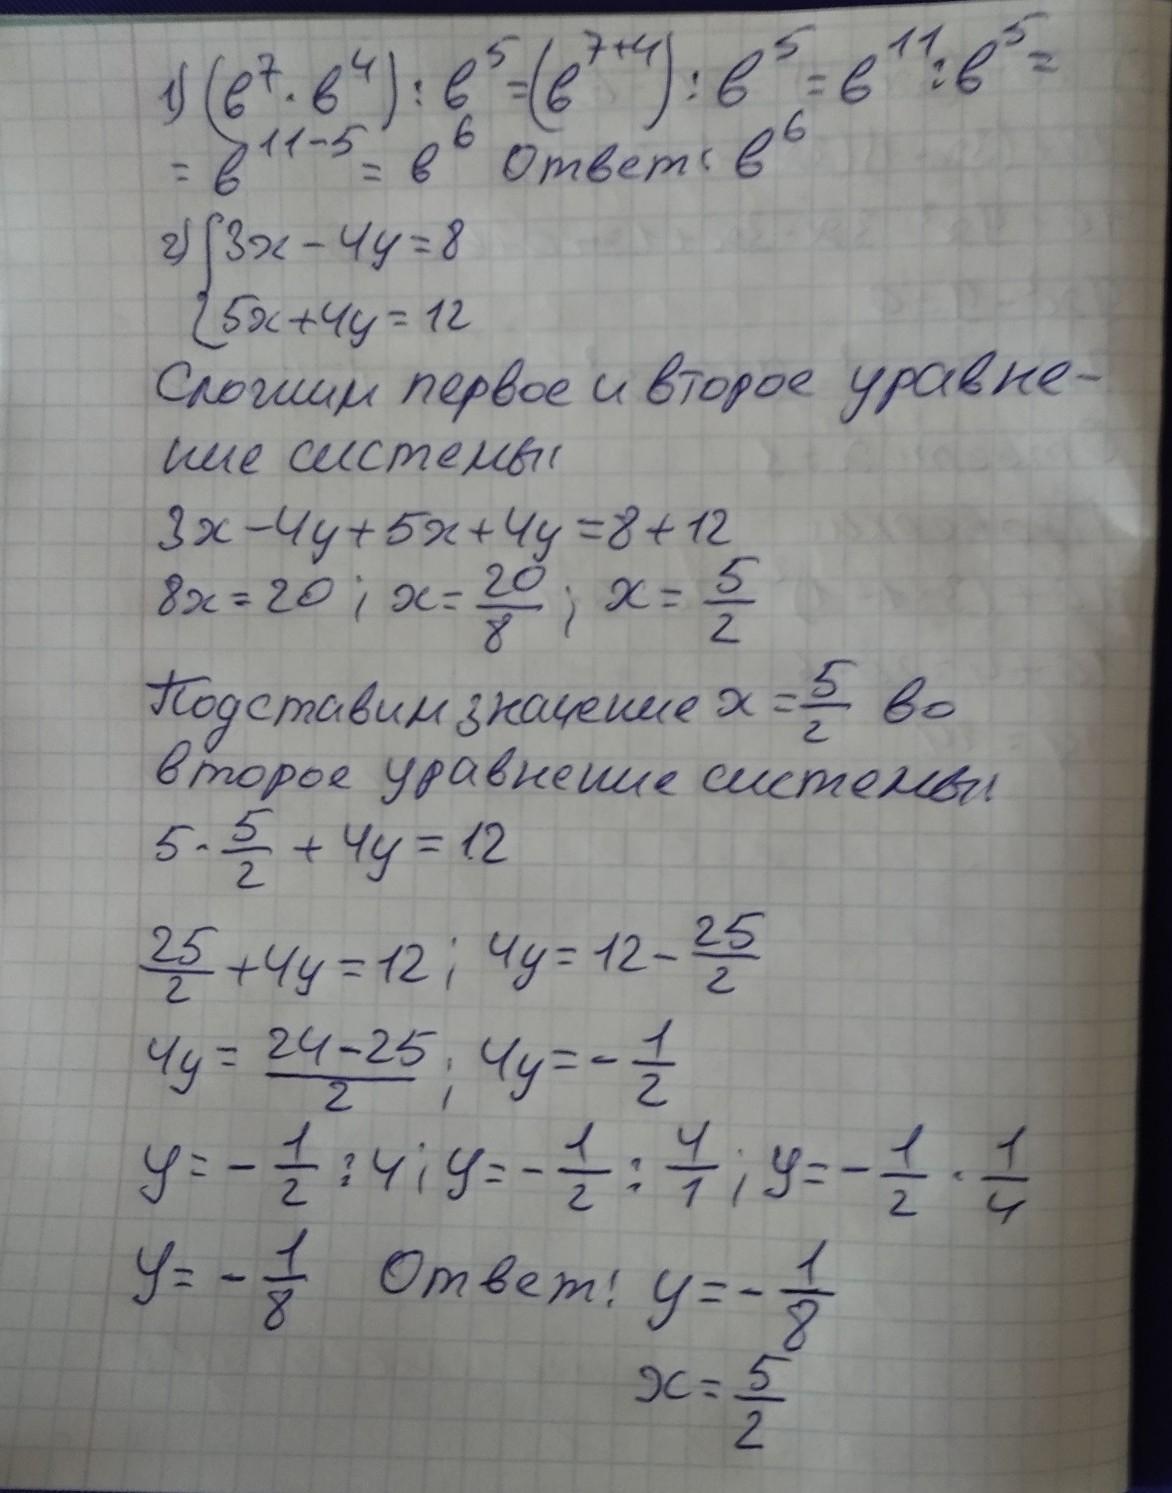 1) (в⁷ · в⁴) : в⁵ = (в⁷⁺⁴) : в⁵ = в¹¹ : в⁵ =
= в¹¹⁻⁵ = в⁶ Ответ: в⁶
2) { 3x - 4y = 8
{ 5x + 4y = 12
Сложим первое и второе уравне-
ние системы:
3x - 4y + 5x + 4y = 8 + 12
8x = 20; x = 20/8; x = 5/2
Подставим значение x = 5/2 во
второе уравнение системы:
5 · 5/2 + 4y = 12
25/2 + 4y = 12; 4y = 12 - 25/2
4y = (24 - 25)/2; 4y = - 1/2
y = - 1/2 : 4; y = - 1/2 : 4/1; y = - 1/2 · 1/4
y = - 1/8 Ответ: y = - 1/8
x = 5/2